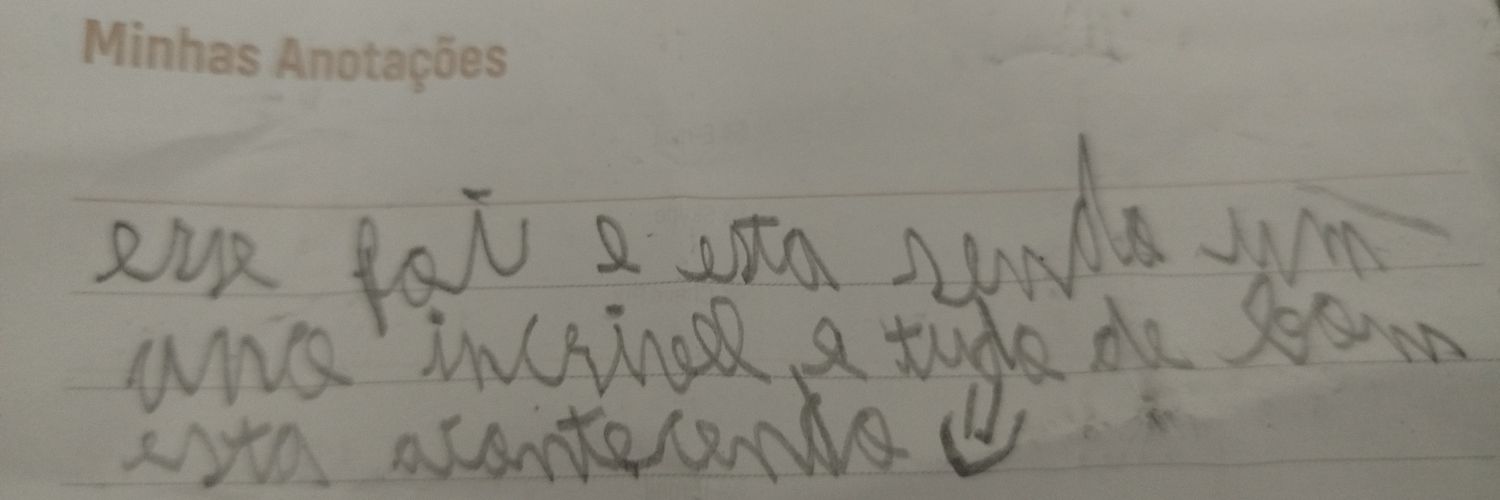 Minhas Anotações
esse foi e esta sendo um
ano incrivel, e tudo de bom
esta acontecendo